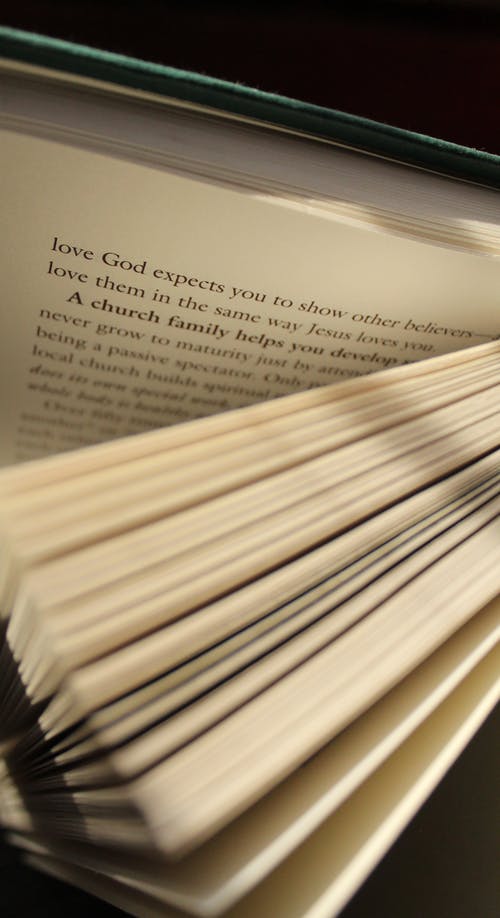 love God expects you to show other believers—
love them in the same way Jesus loves you.
A church family helps you develop
never grow to maturity just by
being a passive spectator. Only
local church builds spiritual
does its own special work
whole body is healthy
Over fifty
another"
each